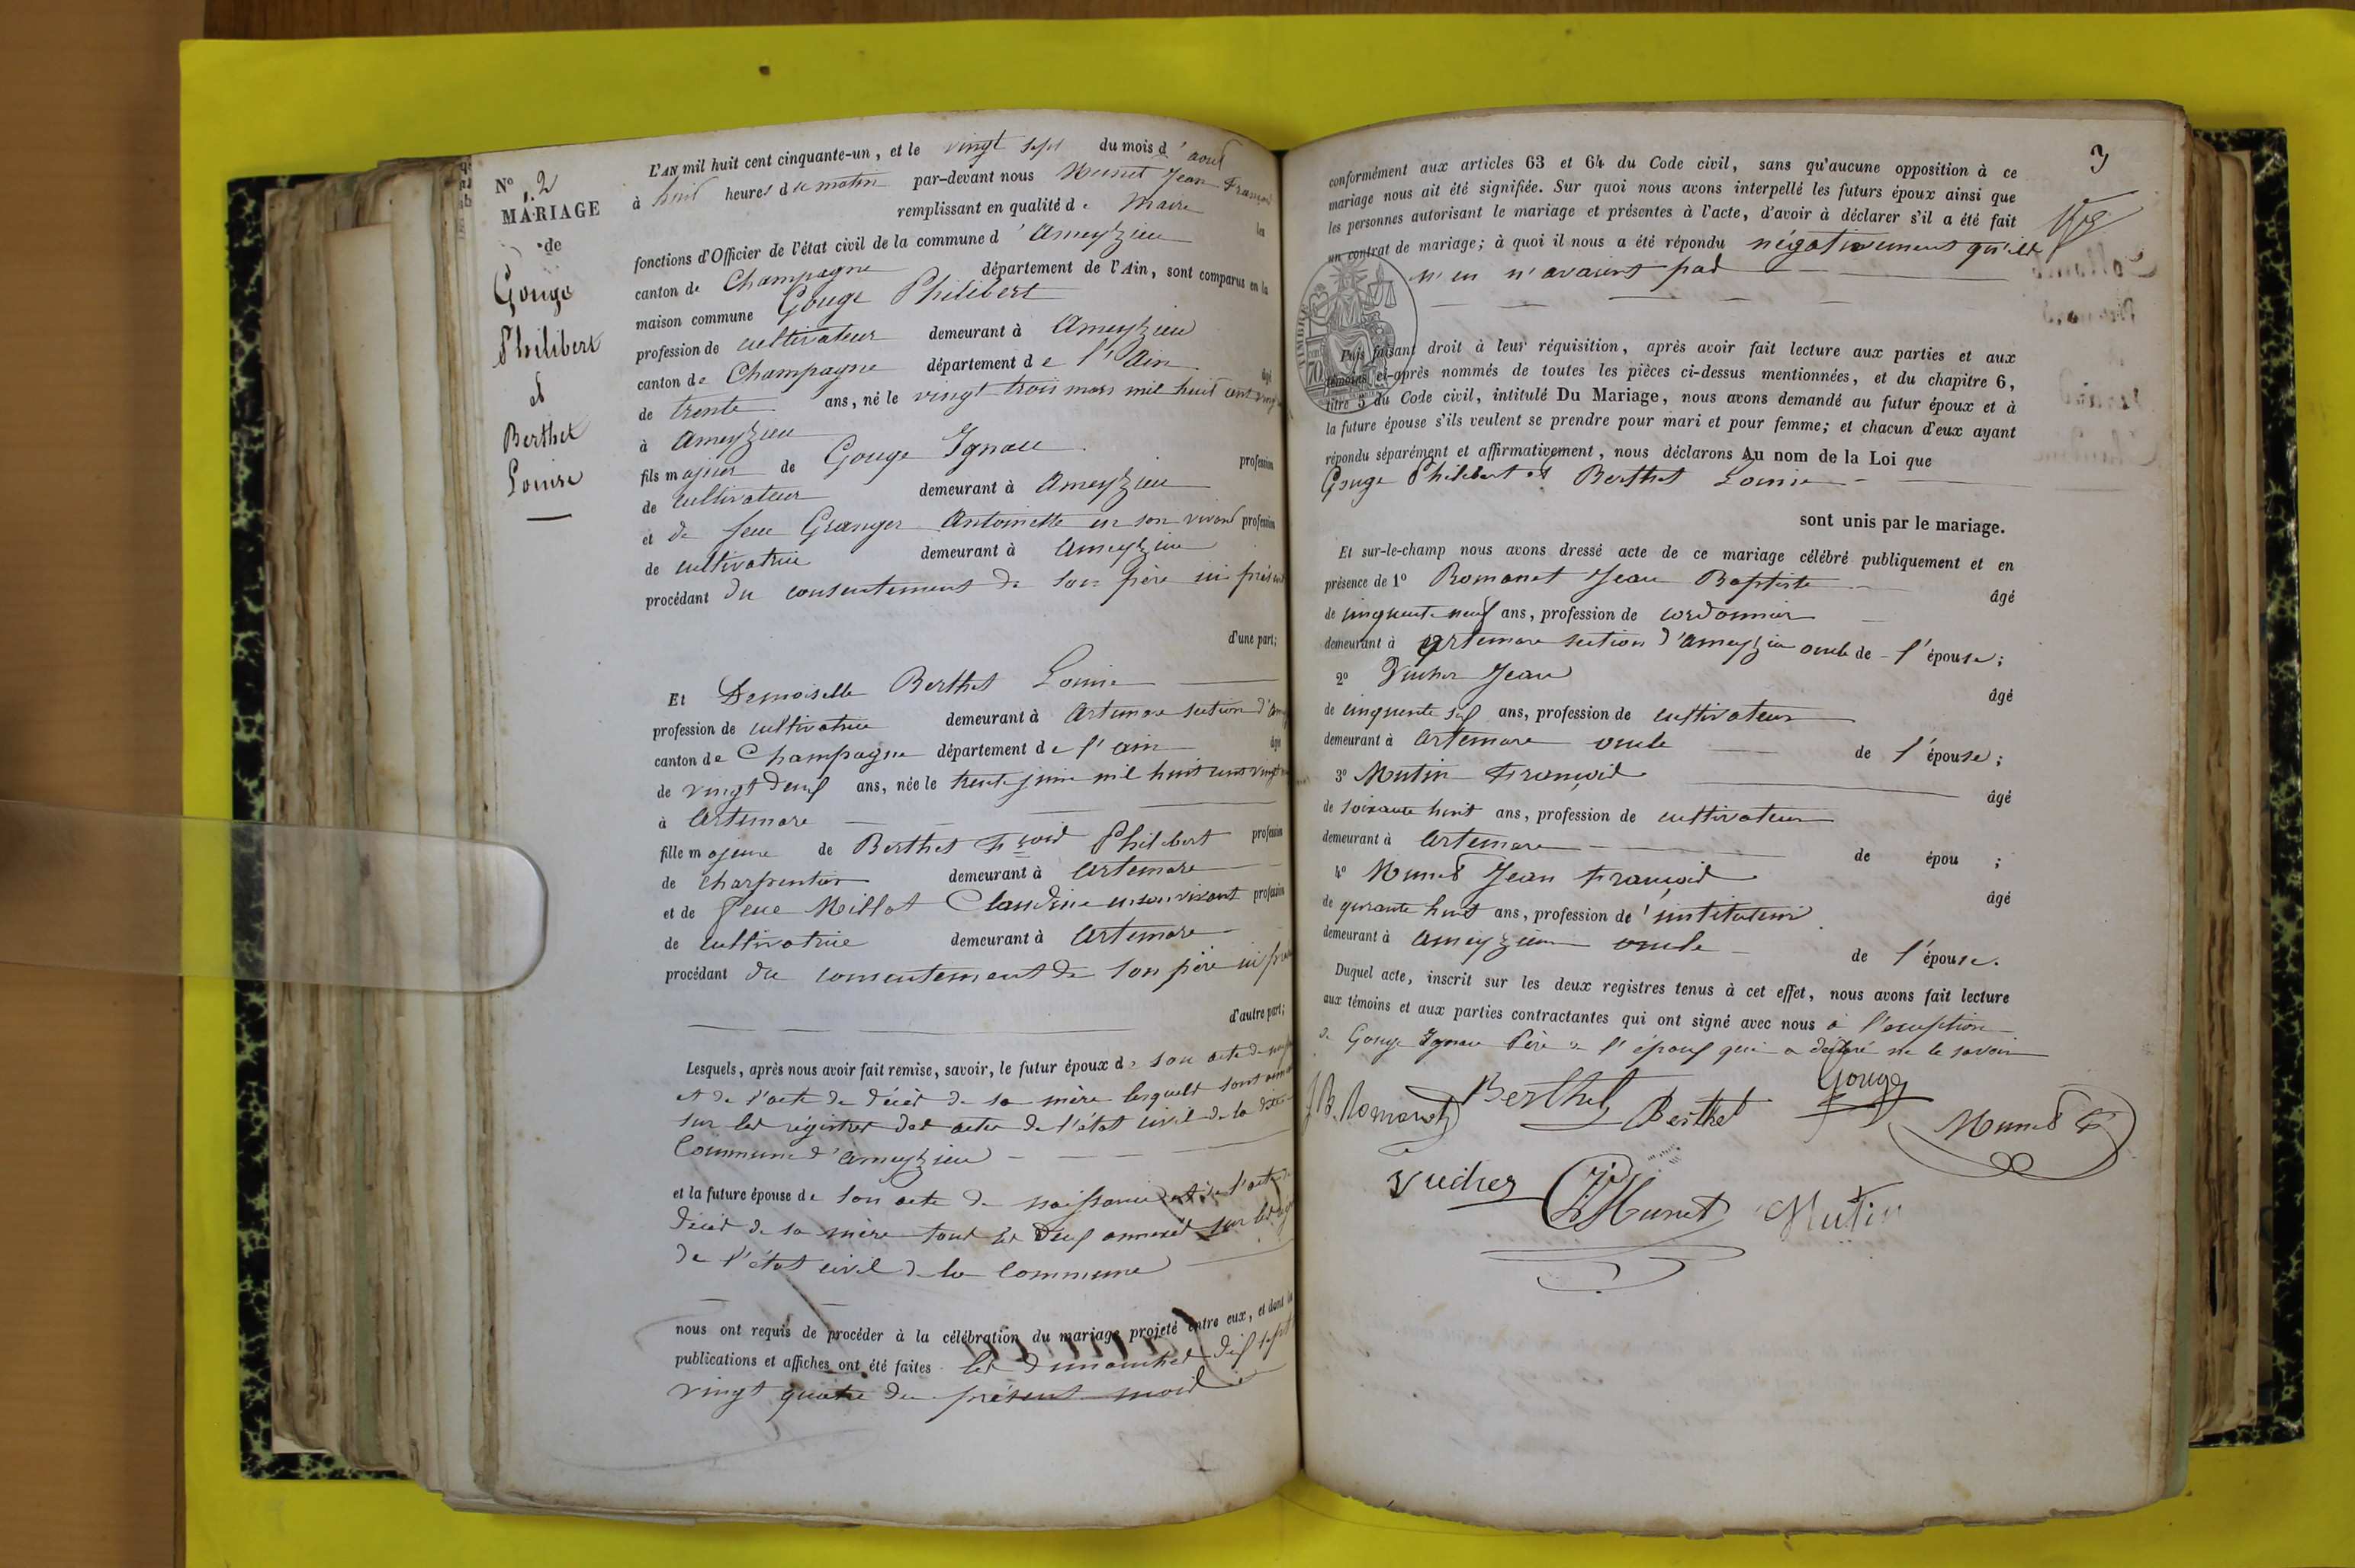 N° 2
MARIAGE
de
Gouge
Philibert
et
Berthet
Louise
L'AN mil huit cent cinquante-un, et le vingt sept du mois d'aout
à huit heures du matin par-devant nous Munet Jean François
remplissant en qualité de Maire les
fonctions d'Officier de l'état civil de la commune d'Ameyzieu
canton de Champagne département de l'Ain, sont comparus en la
maison commune Gouge Philibert
profession de cultivateur demeurant à Ameyzieu
canton de Champagne département de l'Ain âgé
de trente ans, né le vingt trois mars mil huit cent vingt
à Ameyzieu
fils majeur de Gouge Ignace profession
de cultivateur demeurant à Ameyzieu
et de feue Granger Antoinette en son vivant profession
de cultivatrice demeurant à Ameyzieu
procédant du consentement de son père ici présent
d'une part;
Et Demoiselle Berthet Louise
profession de cultivatrice demeurant à Artemare section d'
canton de Champagne département de l'ain âgé
de vingt deux ans, née le trente juin mil huit cent vingt
à Artemare
fille majeure de Berthet Fçois Philibert profession
de charpentier demeurant à Artemare
et de feue Millot Claudine en son vivant profession
de cultivatrice demeurant à Artemare
procédant du consentement de son père ici
d'autre part;
Lesquels, après nous avoir fait remise, savoir, le futur époux de son acte de
et de l'acte de décès de sa mère lesquels sont
sur les régistres des actes de l'état civil de la dite
Commune d'ameyzieu
et la future épouse de son acte de naissance et de l'acte de
décès de sa mère tous les deux annexés sur les
de l'état civil de la Commune
nous ont requis de procéder à la célébration du mariage projeté entre eux, et dont les
publications et affiches ont été faites les dimanches dix sept
vingt quatre du présent mois
3
conformément aux articles 63 et 64 du Code civil, sans qu'aucune opposition à ce
mariage nous ait été signifiée. Sur quoi nous avons interpellé les futurs époux ainsi que
les personnes autorisant le mariage et présentes à l'acte, d'avoir à déclarer s'il a été fait
un contrat de mariage; à quoi il nous a été répondu négativement qu'ils
n'en n'avaient pas
TIMBRE
70
Puis faisant droit à leur réquisition, après avoir fait lecture aux parties et aux
témoins ci-après nommés de toutes les pièces ci-dessus mentionnées, et du chapitre 6,
titre 5 du Code civil, intitulé Du Mariage, nous avons demandé au futur époux et à
la future épouse s'ils veulent se prendre pour mari et pour femme; et chacun d'eux ayant
répondu séparément et affirmativement, nous déclarons Au nom de la Loi que
Gouge Philibert et Berthet Louise
sont unis par le mariage.
Et sur-le-champ nous avons dressé acte de ce mariage célébré publiquement et en
présence de 1° Romanet Jean Baptiste âgé
de cinquante neuf ans, profession de cordonnier
demeurant à Artemare section d'ameyzieu oncle de l'épouse;
2° Vucher Jean âgé
de cinquante six ans, profession de cultivateur
demeurant à Artemare oncle de l'épouse;
3° Mutin François âgé
de soixante huit ans, profession de cultivateur
demeurant à Artemare de épou ;
4° Munet Jean François âgé
de quarante huit ans, profession de l'instituteur
demeurant à Ameyzieu oncle de l'épouse.
Duquel acte, inscrit sur les deux registres tenus à cet effet, nous avons fait lecture
aux témoins et aux parties contractantes qui ont signé avec nous à l'exception
de Gouge Ignace Père de l'époux qui a déclaré ne le savoir
J B. Romanet Berthet Berthet Gouge Munet
Vucher Munet Mutin